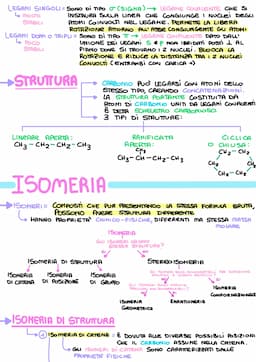 LEGAMI SINGOLI = SONO DI TIPO σ (SIGMA) → LEGAME COVALENTE CHE SI
INSTAURA SULLA LINEA CHE CONGIUNGE I NUCLEI DEGLI
ATOMI COINVOLTI NEL LEGAME. PERMETTE LA LIBERA
ROTAZIONE ATTORNO ALL'ASSE CONGIUNGENTE GLI ATOMI
LEGAMI DOPPI O TRIPLI = SONO DI TIPO π → LEGAME COVALENTE DATO DALL'
UNIONE DEI LEGAMI
PIANO DOVE SI TROVANO I 2 NUCLEI. BLOCCA LA
ROTAZIONE E RIDUCE LA DISTANZA TRA I 2 NUCLEI
COINVOLTI
STRUTTURA
CARBONIO PUÒ LEGARSI CON ATOMI DELLO
STESSO TIPO, CREANDO CONCATENAZIONI.
LA STRUTTURA PORTANTE COSTITUITA DA
ATOMI DI CARBONIO UNITI DA LEGAMI COVALENTI
È DETTA SCHELETRO CARBONIOSO
3 TIPI DI STRUTTURE:
LINEARE APERTA:
CH3 - CH2 - CH2 - CH3
RAMIFICATA
APERTA:
CH3
CH3 - CH - CH2 - CH3
CICLICA
O CHIUSA:
CH2 - CH2
CH2 CH2
CH2 - CH2
ISOMERIA
ISOMERI = COMPOSTI CHE PUR PRESENTANDO LA STESSA FORMULA BRUTA,
POSSONO AVERE STRUTTURA DIFFERENTE
HANNO PROPRIETÀ CHIMICO-FISICHE DIFFERENTI MA STESSA MASSA
MOLARE
ISOMERIA
ISOMERIA DI STRUTTURA
STEREOISOMERIA
ISOMERIA
DI CATENA
ISOMERIA
DI POSIZIONE
ISOMERIA
DI GRUPPO
ISOMERIA
CONFORMAZIONALE
ISOMERIA
GEOMETRICA
ISOMERIA DI STRUTTURA
ISOMERIA DI CATENA = È DOVUTA ALLE DIVERSE POSSIBILI POSIZIONI
CHE IL CARBONIO ASSUME NELLA CATENA.
GLI ISOMERI DI CATENA SONO CARATTERIZZATI DALLE
PROPRIETÀ FISICHE